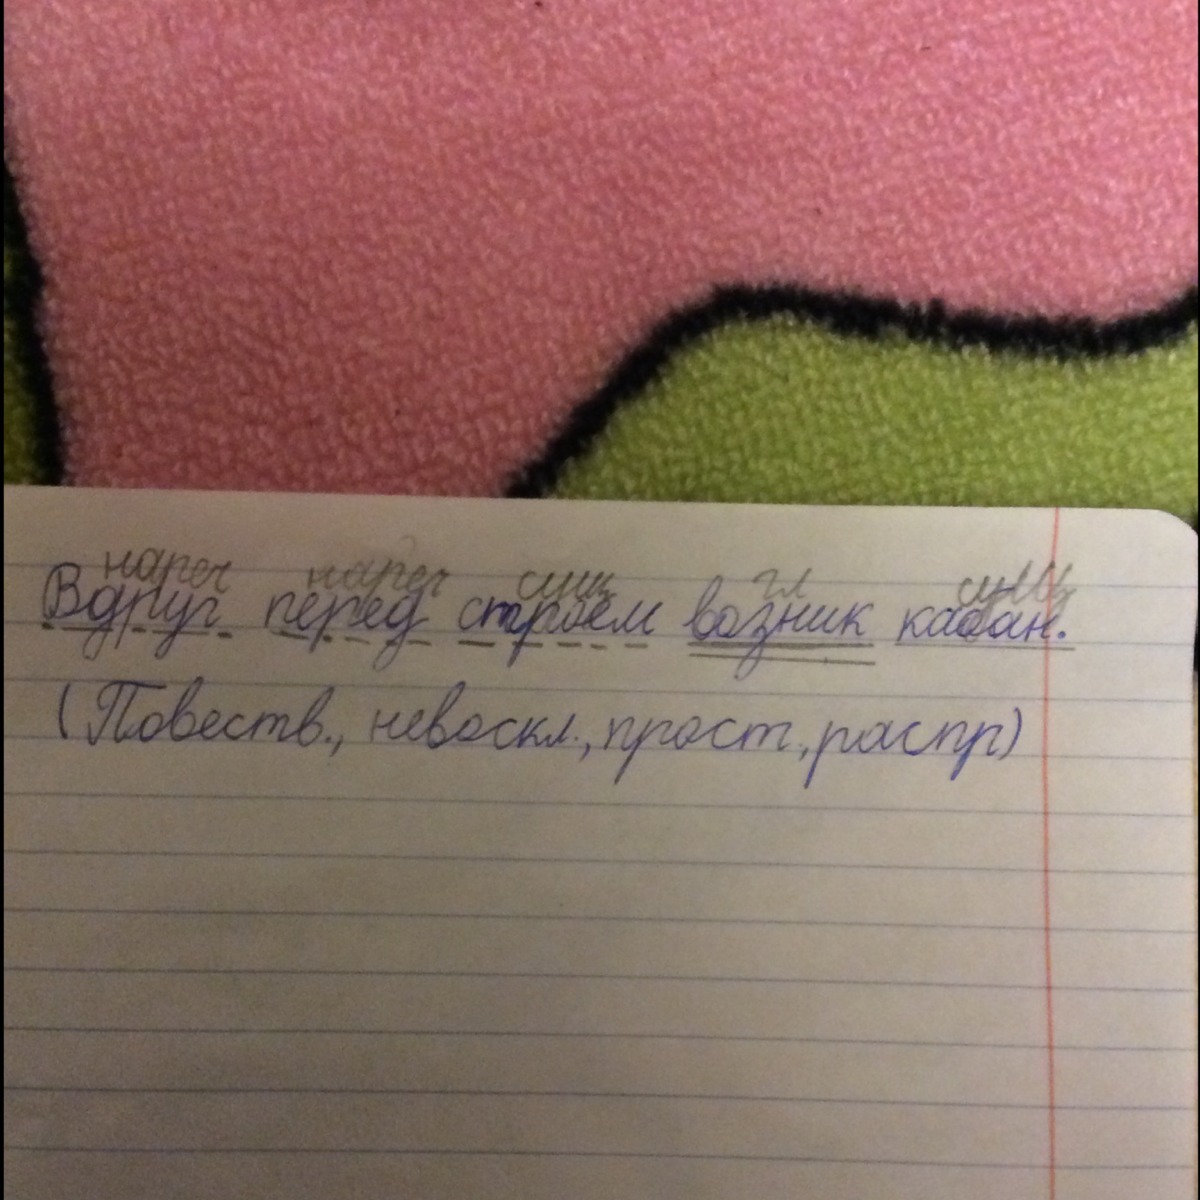 нареч нареч сущ гл сущ
Вдруг перед строем возник кабан.
(Повеств., невоскл., прост., распр)